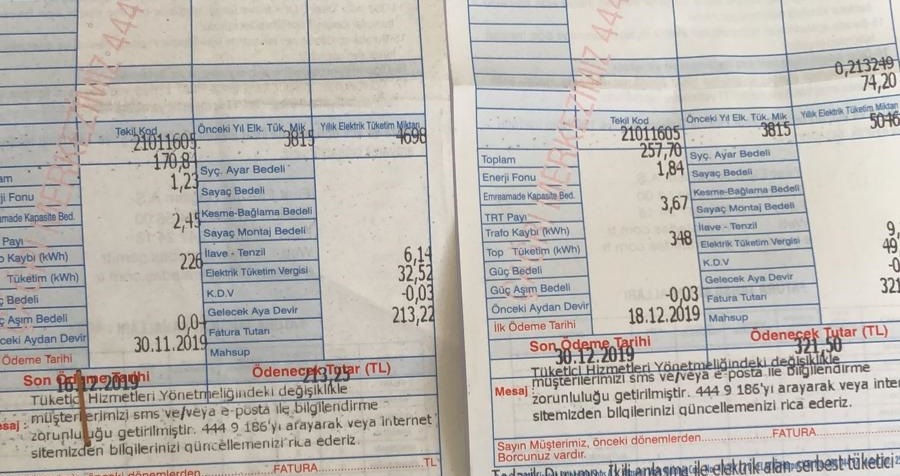 MERKEZİMİZ 444
Tekil Kod
Önceki Yıl Elk. Tük. Mik
Yıllık Elektrik Tüketim Miktarı
21011605
3815
4698
170,8
Syç. Ayar Bedeli
ji Fonu
1,23
Sayaç Bedeli
Kapasite Bed.
Kesme-Bağlama Bedeli
Payı
2,45
Sayaç Montaj Bedeli
Kaybı (kWh)
İlave - Tenzil
Tüketim (kWh)
226
Elektrik Tüketim Vergisi
6,14
Bedeli
K.D.V
32,52
Aşım Bedeli
Gelecek Aya Devir
-0,03
Aydan Devir
0,0
Fatura Tutarı
213,22
Ödeme Tarihi
30.11.2019
Mahsup
Son Ödeme Tarihi
Ödenecek Tutar (TL)
12.2019
213,25
Tüketici Hizmetleri Yönetmeliğindeki değişiklikle
müşterilerimizi sms ve/veya e-posta ile bilgilendirme
zorunluluğu getirilmiştir. 444 9 186'yı arayarak veya internet
sitemizden bilgilerinizi güncellemenizi rica ederiz.
önceki dönemlerden
FATURA
TL
MERKEZİMİZ 444
0,213249
74,20
Tekil Kod
Önceki Yıl Elk. Tük. Mik
Yıllık Elektrik Tüketim Miktarı
21011605
3815
5046
Toplam
257,70
Syç. Ayar Bedeli
Enerji Fonu
1,84
Sayaç Bedeli
Emreamade Kapasite Bed.
Kesme-Bağlama Bedeli
TRT Payı
3,67
Sayaç Montaj Bedeli
Trafo Kaybı (kWh)
İlave - Tenzil
Top Tüketim (kWh)
348
Elektrik Tüketim Vergisi
9,
Güç Bedeli
K.D.V
49
Güç Aşım Bedeli
Gelecek Aya Devir
-0
Önceki Aydan Devir
-0,03
Fatura Tutarı
321
İlk Ödeme Tarihi
18.12.2019
Mahsup
Son Ödeme Tarihi
Ödenecek Tutar (TL)
30.12.2019
321,50
Mesaj :
Tüketici Hizmetleri Yönetmeliğindeki değişiklikle
müşterilerimizi sms ve/veya e-posta ile bilgilendirme
zorunluluğu getirilmiştir. 444 9 186'yı arayarak veya inter
sitemizden bilgilerinizi güncellemenizi rica ederiz.
Sayın Müşterimiz, önceki dönemlerden
FATURA
Borcunuz vardır.
Tedarik Durumu: İkili anlaşma ile elektrik alan serbest tüketici